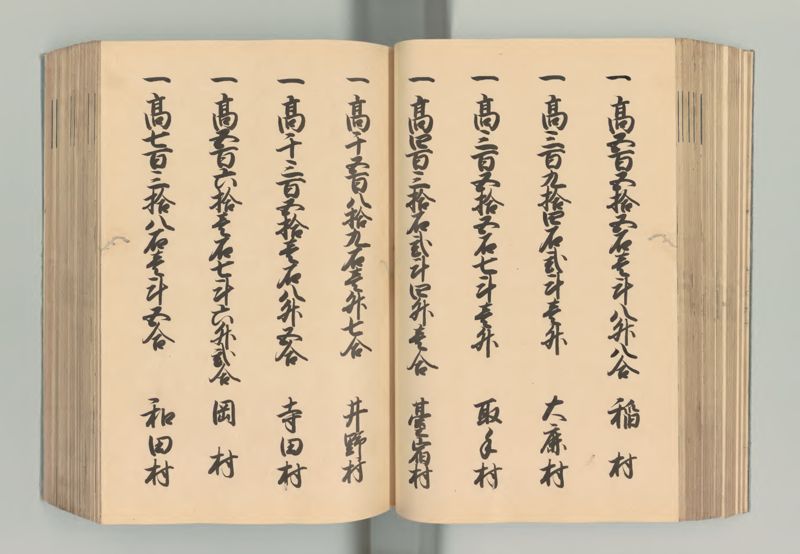 一高五百五拾五石壱斗八升八合 稲村
一高三百九拾四石弐斗壱升 大鹿村
一高三百五拾五石七斗壱升 取手村
一高四百三拾石弐斗四升壱合 臺宿村
一高千五百八拾九石壱升七合 井野村
一高千三百五拾壱石八升五合 寺田村
一高五百六拾壱石七斗六升弐合 岡村
一高七百三拾八石壱斗五合 和田村